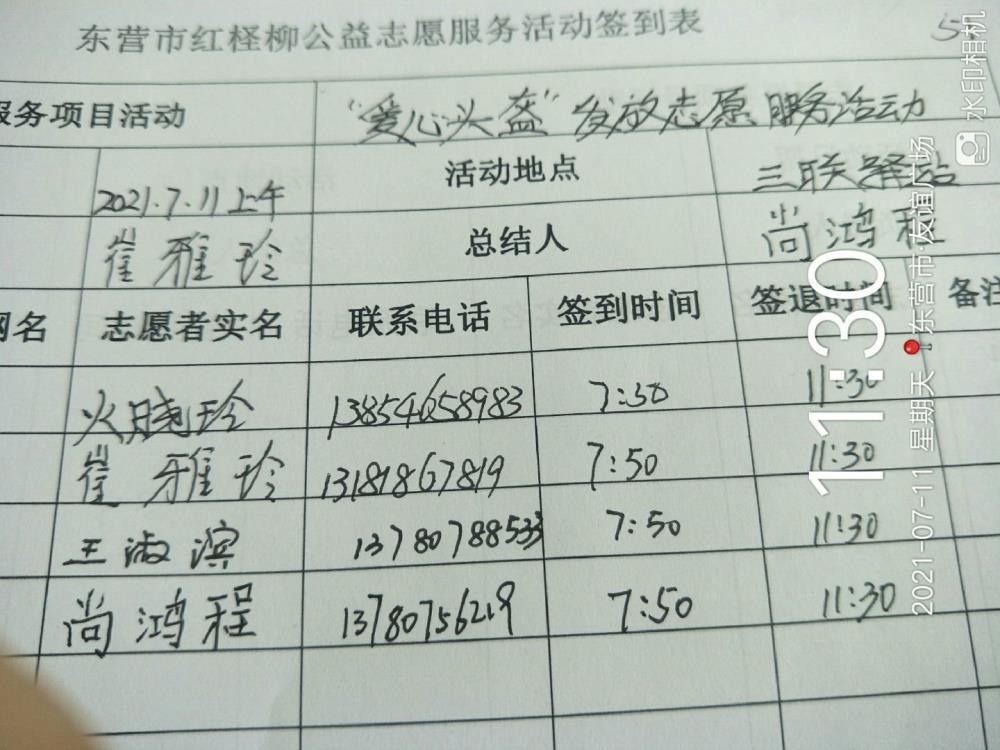 东营市红柽柳公益志愿服务活动签到表
服务项目活动 "爱心头盔"发放志愿服务活动
2021.7.11上午 活动地点 三联驿站
崔雅玲 总结人 尚鸿程
网名 志愿者实名 联系电话 签到时间 签退时间 备注
火晓玲 13854658983 7:50 11:30
崔雅玲 13181867819 7:50 11:30
王淑滨 13780788533 7:50 11:30
尚鸿程 13780756219 7:50 11:30
水印相机
11:30
2021-07-11 星期天 东营市·友谊广场